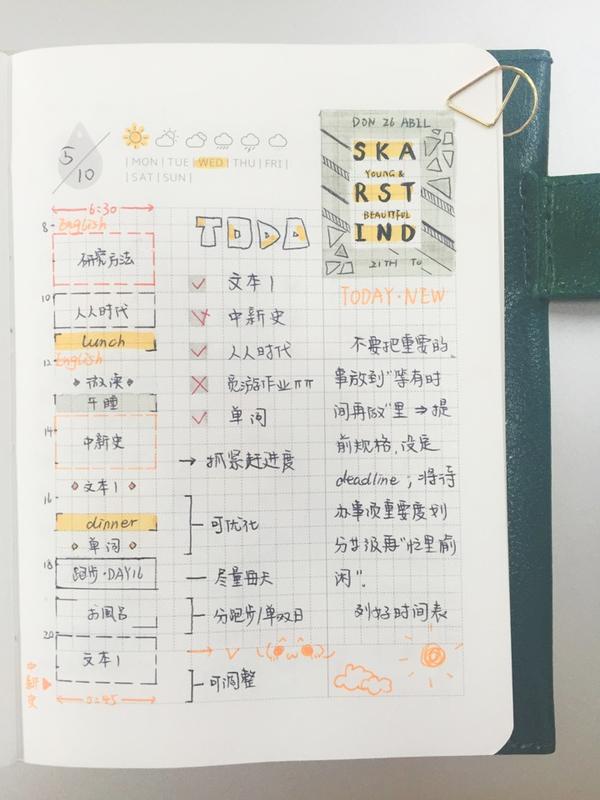 5/10
| MON | TUE | WED | THU | FRI |
| SAT | SUN |
6:30
8
English
研究方法
10
人人时代
lunch
12
English
微澳
午睡
14
中新史
文本1
16
dinner
单词
18
跑步·DAY16
お風呂
20
文本1
中新史
TODO
文本1
中新史
人人时代
单词
→ 抓紧赶进度
可优化
尽量每天
分跑步/单双日
可调整
DON 26 ABIL
SKA
YOUNG &
RST
BEAUTIFUL
IND
21TH TO
TODAY·NEW
不要把重要的
事放到"等有时
间再做"里 ⇒ 提
前规格,设定
deadline;将待
办事项重要度划
分等级再"忙里偷
闲"。
列好时间表